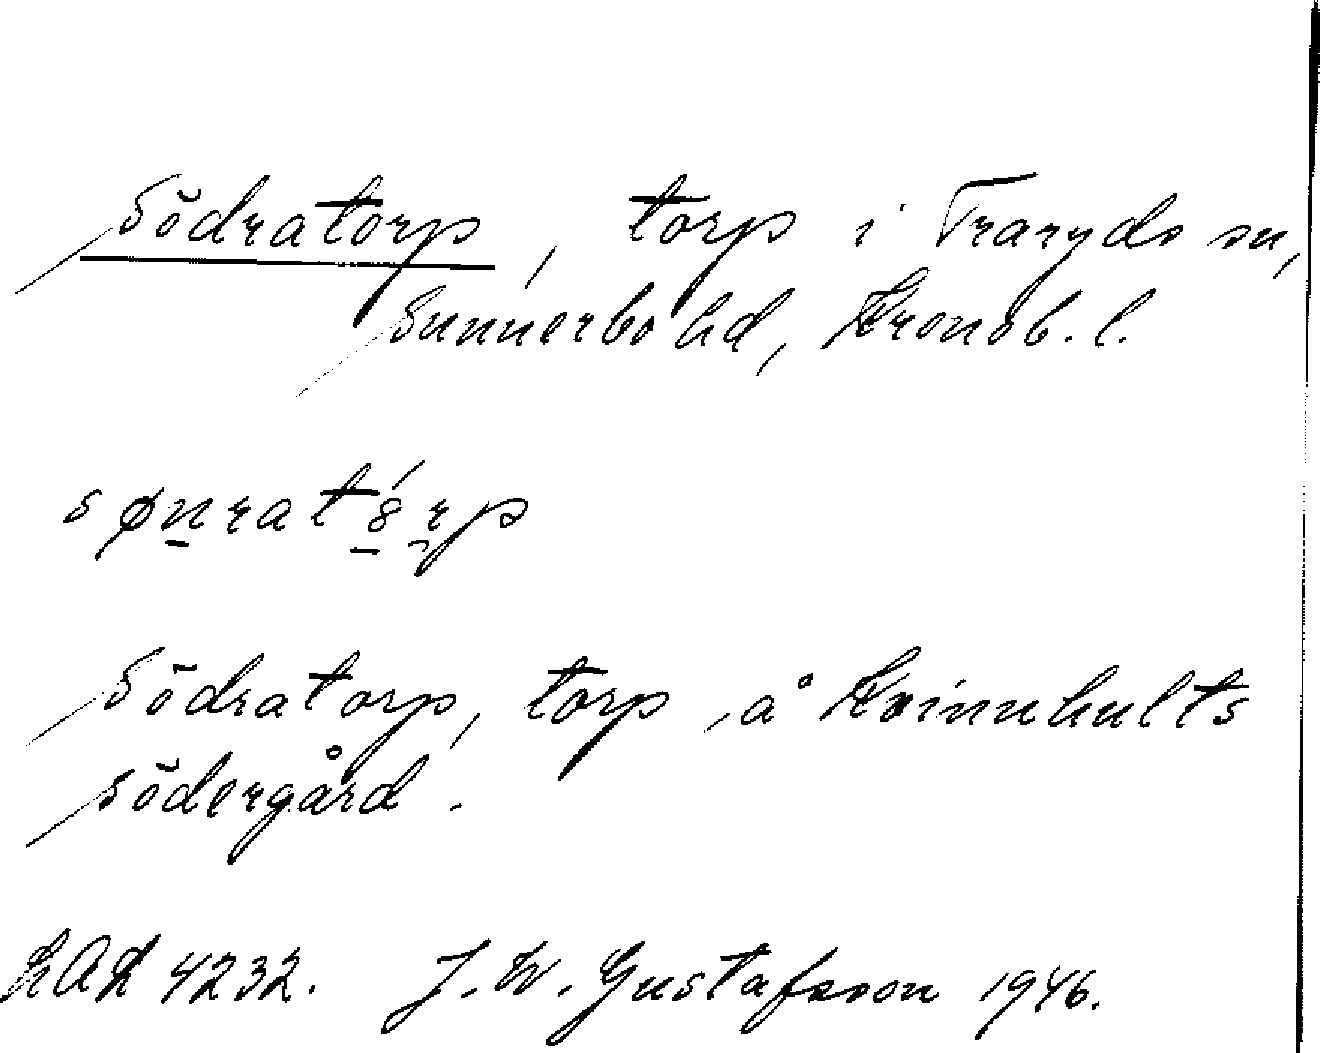 Södratorp, torp i Traryds sn,
Sunnerbo hd, Kronob. l.
sønrat
Södratorp, torp å Kvinnhults
södergård.
LAL 4232. J. W. Gustafsson 1946.